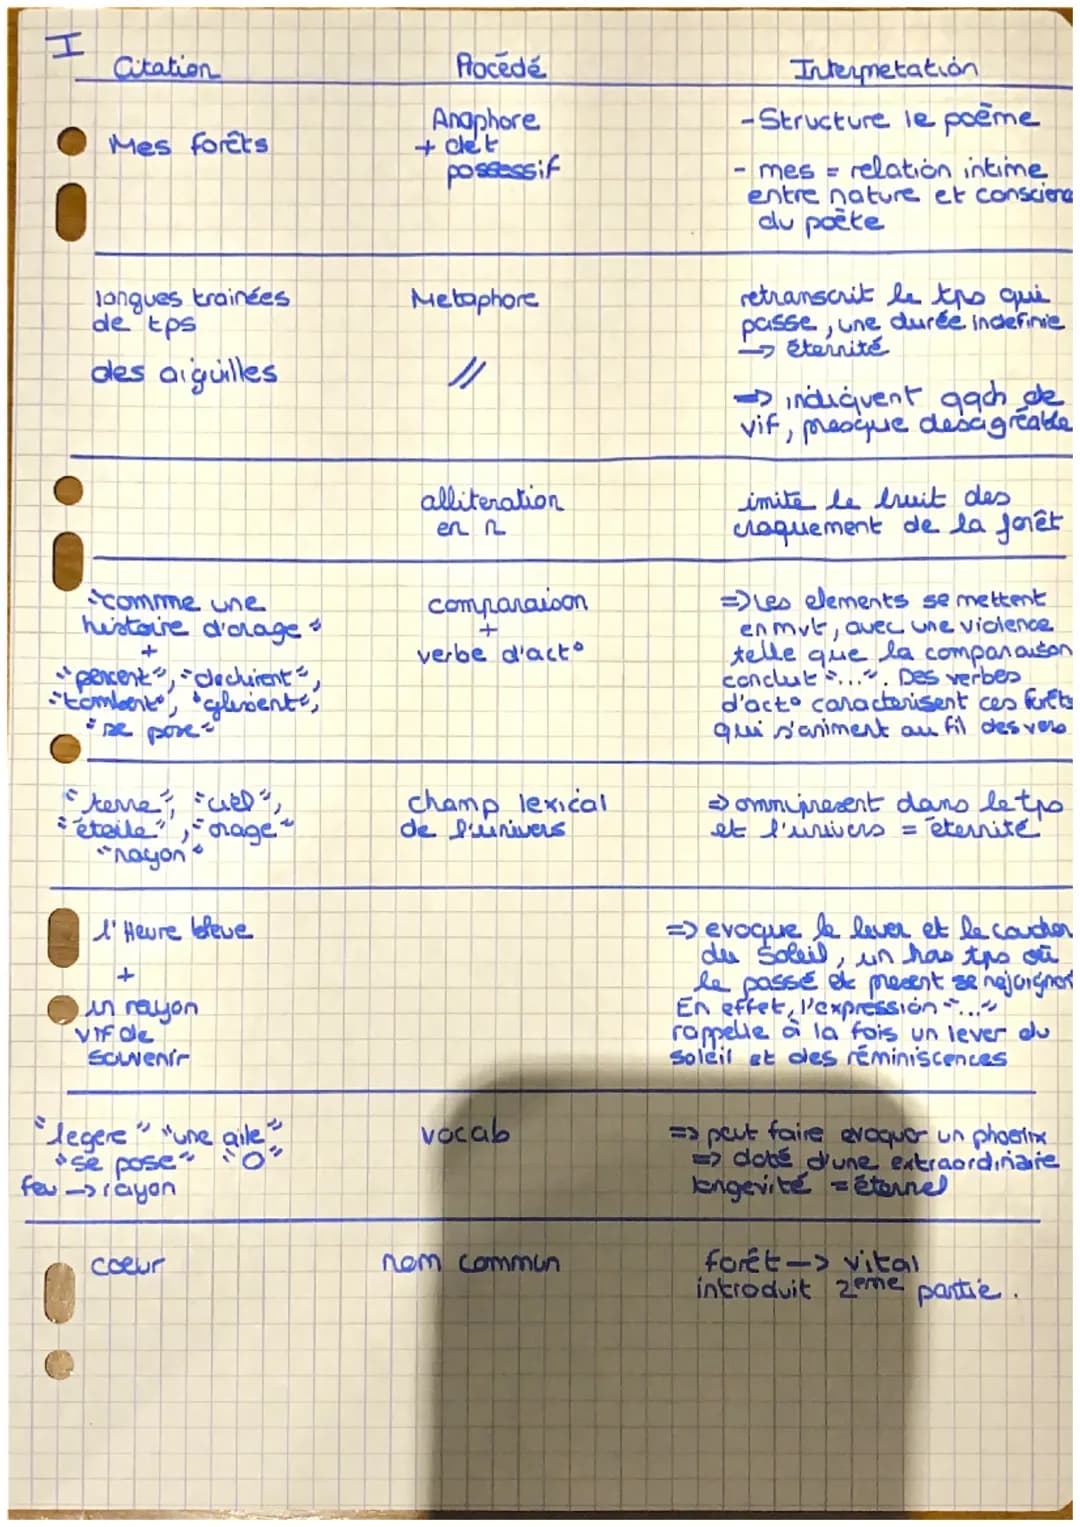 I
Citation Procédé Interpretation
Mes forêts
Anaphore
+ det
possessif
- Structure le poème
- mes = relation intime
entre nature et conscienc
du poète
longues trainées
de tps
Metaphore
retranscrit le tps qui
passe, une durée indefinie
→ éternité
des aiguilles
//
=> indiquent qqch de
vif, presque desagréable
alliteration
en r
imite le bruit des
craquement de la forêt
"comme une
histoire d'orage"
+
"percent", "dechirent",
"tombent", "glissent",
"se pose"
comparaison
+
verbe d'act°
=> Les elements se mettent
en mvt, avec une violence
telle que la comparaison
conclut "...". Des verbes
d'act° caracterisent ces forêts
qui s'animent au fil des vers
"terre", "ciel",
"étoile", "orage"
"rayon"
champ lexical
de l'univers
=> omnipresent dans le tps
et l'univers = éternité
l'Heure bleue
+
un rayon
vif de
souvenir
=> evoque le lever et le coucher
du soleil, un hors tps où
le passé et present se rejoignent
En effet, l'expression "..."
rappelle à la fois un lever du
soleil et des réminiscences
"legere" "une aile"
"se pose" "O"
feu → rayon
vocab
=> peut faire evoquer un phoenix
=> doté d'une extraordinaire
longevité = éternel
coeur
nom commun
forêt → vital
introduit 2eme partie.